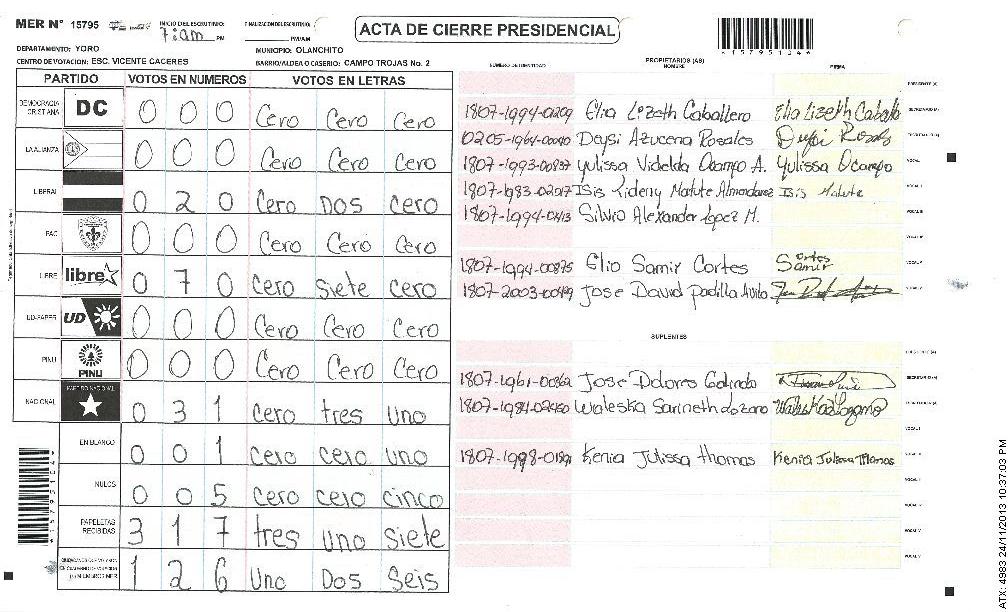 MER N° 15795 INICIO DEL ESCRUTINIO: 7:am PM FINALIZACION DEL ESCRUTINIO: PM/AM
ACTA DE CIERRE PRESIDENCIAL
DEPARTAMENTO: YORO MUNICIPIO: OLANCHITO
CENTRO DE VOTACION: ESC. VICENTE CACERES BARRIO/ALDEA O CASERIO: CAMPO TROJAS No. 2
PARTIDO VOTOS EN NUMEROS VOTOS EN LETRAS
DEMOCRACIA CRISTIANA DC 0 0 0 Cero Cero Cero
LA ALIANZA 0 0 0 Cero Cero Cero
LIBERAL 0 2 0 Cero Dos cero
PAC 0 0 0 Cero Cero Cero
LIBRE libre 0 7 0 cero siete cero
UD-FAPER UD 0 0 0 Cero Cero Cero
PINU PINU 0 0 0 Cero Cero Cero
NACIONAL PARTIDO NACIONAL 0 3 1 cero tres uno
EN BLANCO 0 0 1 cero cero uno
NULOS 0 0 5 cero cero cinco
PAPELETAS RECIBIDAS 3 1 7 tres uno siete
1 2 6 Uno Dos Seis
NUMERO DE IDENTIDAD PROPIETARIOS (AS) NOMBRE FIRMA
PRESIDENTE (A)
1807-1994-0209 Elia Lizeth Caballero Elia Lizeth Caballo SECRETARIO (A)
0205-1964-00040 Daysi Azucena Rosales Deysi Rosales ESCRUTADOR (A)
1807-1993-00837 Yulissa Videlda Ocampo A. Yulissa Ocampo VOCAL I
1807-1983-02017 Isis Yideny Matute Almendarez Isis Matute VOCAL II
1807-1994-0413 Silvio Alexander Lopez M. VOCAL III
VOCAL IV
1807-1994-00875 Elio Samir Cortes Samir Cortes VOCAL V
1807-2003-00499 Jose David padilla Avila
SUPLENTES
PRESIDENTE (A)
1807-1961-00362 Jose Dolores Galindo SECRETARIO (A)
1807-1984-02450 Waleska Sarineth Lozano Waleska Lozano ESCRUTADOR (A)
VOCAL I
1807-1998-01891 Kenia Julissa Thomas Kenia Julissa Thomas VOCAL II
ATX: 4983 24/11/2013 10:37:03 PM